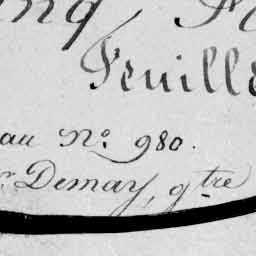 Feuille
au N.º 980.
r. Demay, g.tre